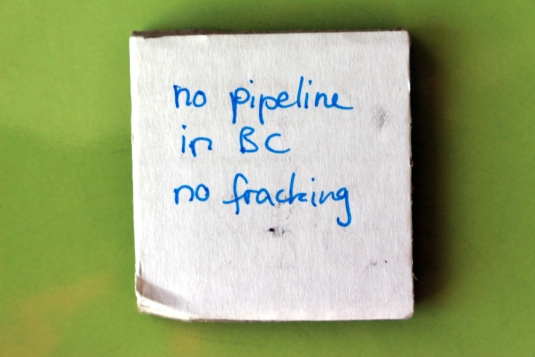 no pipeline
in BC
no fracking